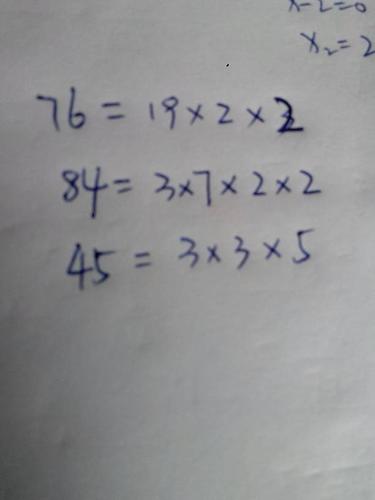 x-2=0
x₂=2
76=19×2×2
84=3×7×2×2
45=3×3×5